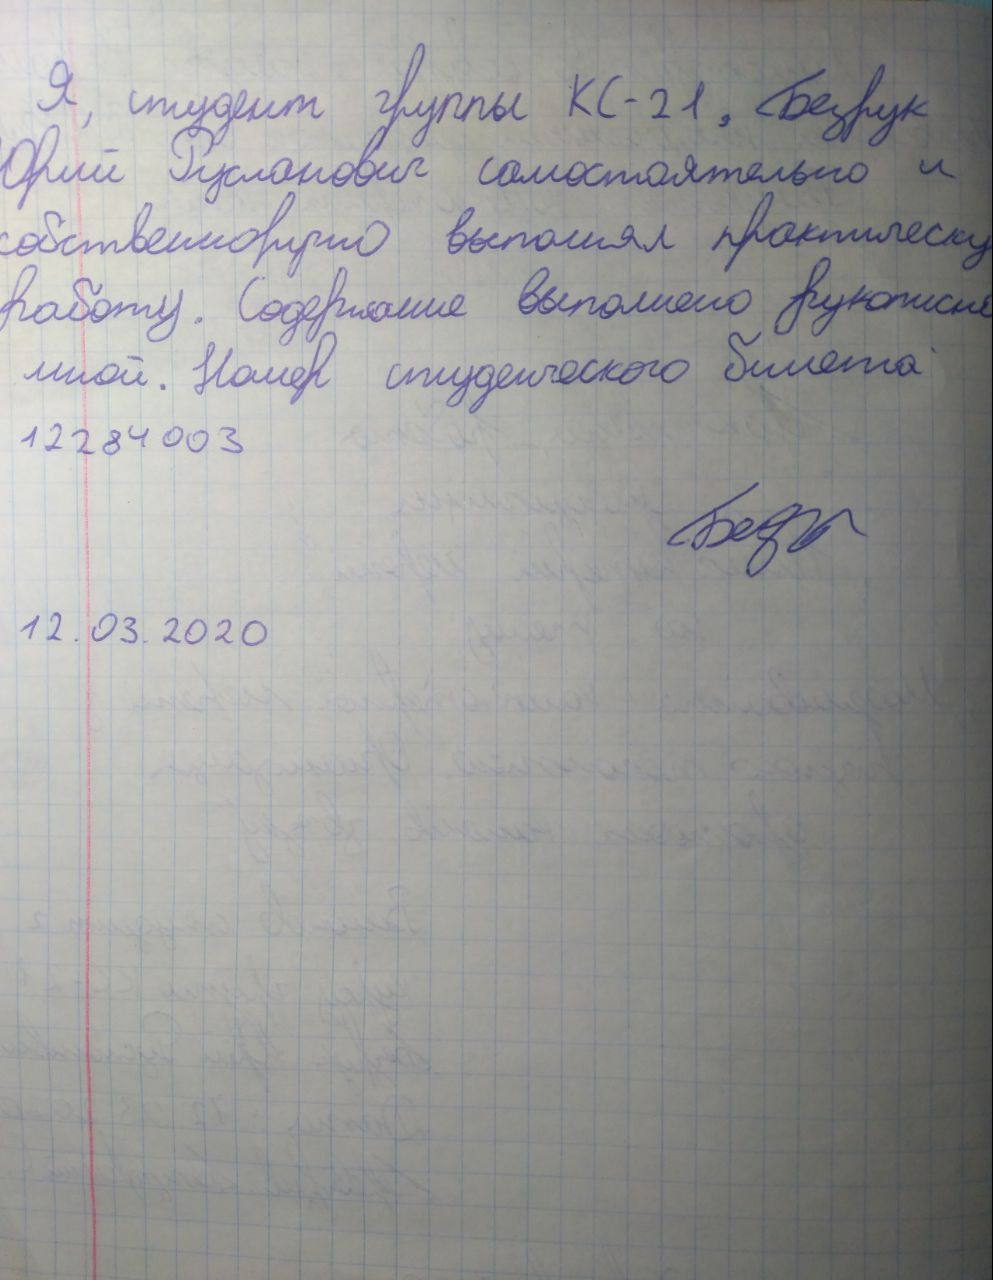 Я, студент группы КС-21, Безрук
Юрий Русланович самостоятельно и
собственноручно выполнял практическу
работу. Содержание выполнено рукописно
мной. Номер студенческого билета
12284003
Безр
12.03.2020